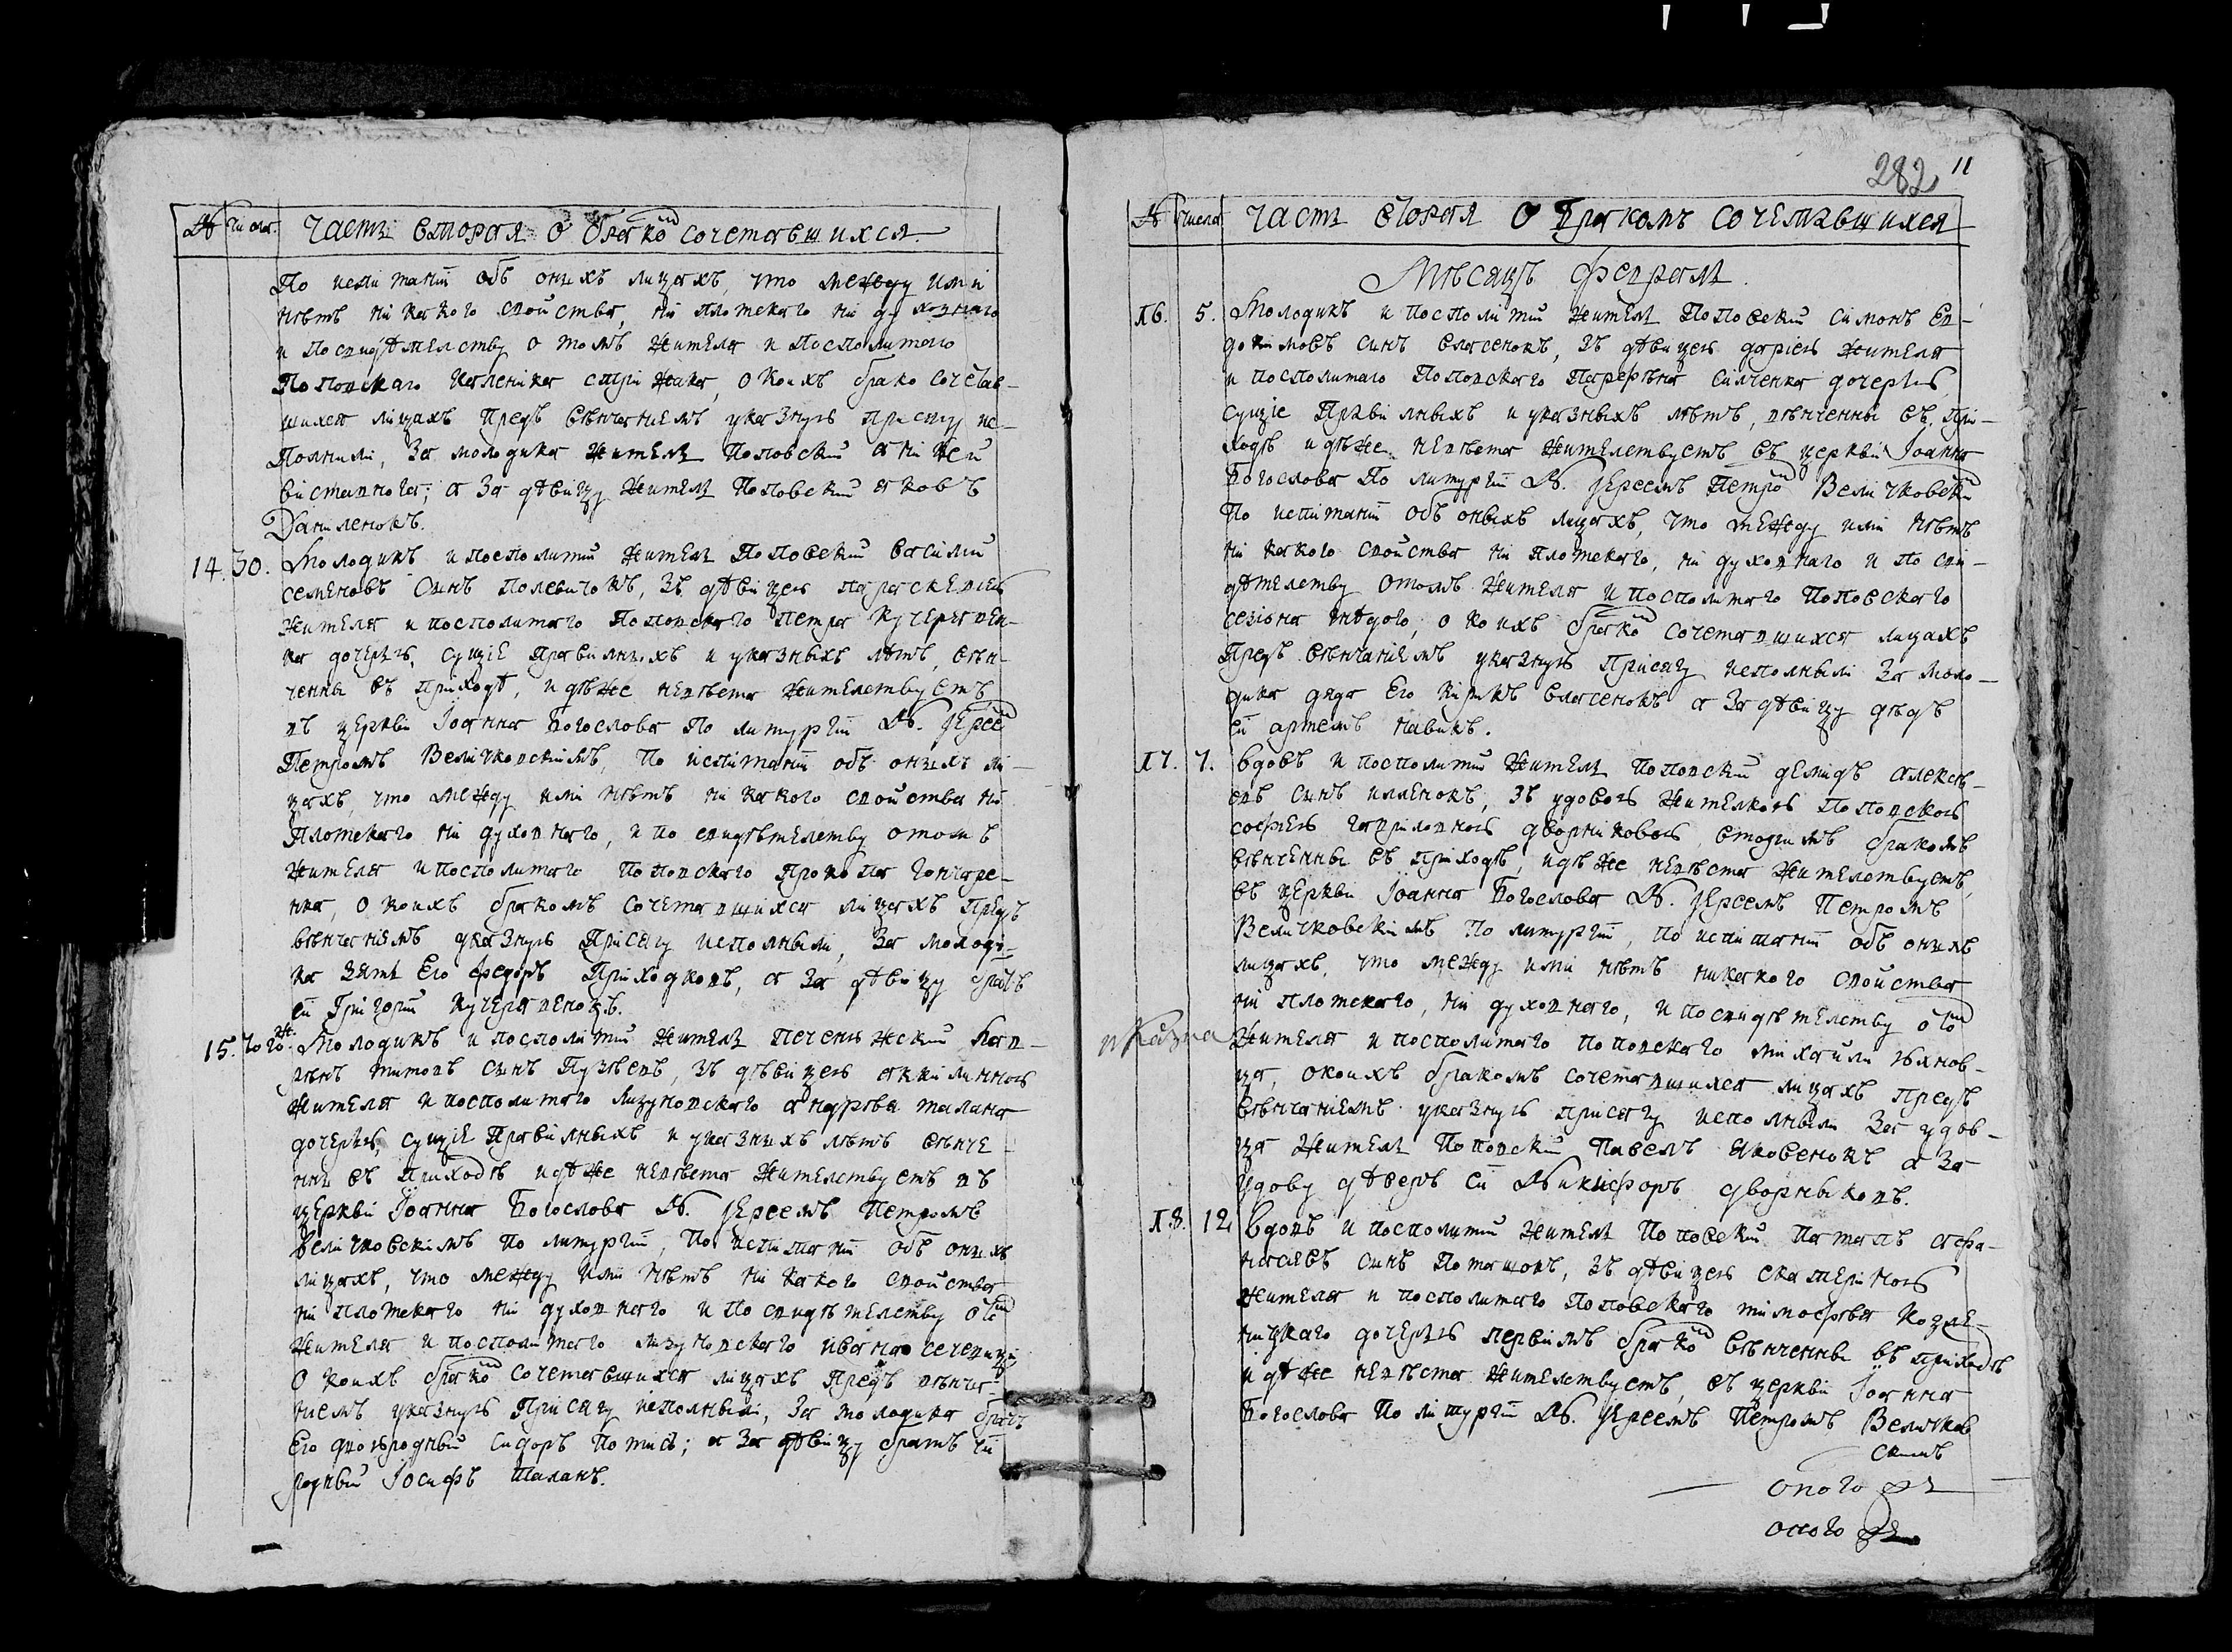 № Числа. Часть вторая о бракомъ сочетавшихся.
По испитаніи объ онихъ лицахъ, что между ими
нѣтъ ни какого свойства, ни плотскаго ни духовнаго
и по свидѣтелству о томъ жителя и посполитаго
Поповскаго Каленика стрижака, о коихъ брако сочетав-
шихся лицахъ предъ вѣнчаніемъ указную присягу ис-
полнили, за молодика житель Поповскій
а за дѣвицу житель Поповскій яковъ
Даниленокъ.
14. 30. Молодикъ и посполитій житель Поповскій василій
семеновъ синъ Полевичокъ, зъ дѣвицею параскевіею
жителя и посполитаго Поповскаго Петра Кучерявен-
ка дочерью, сущіе правилнихъ и указныхъ лѣтъ, вѣн-
ченны въ приходѣ, идѣже невѣста жителствуетъ
въ церквѣ Іоанна Богослова по литургіи №. іереемъ
Петромъ Величковскімъ, по испитаніи объ онихъ ли-
цахъ, что между ими нѣтъ ни какого свойства ни
плотскаго ни духовнаго, и по свидѣтелству о томъ
жителя и посполитаго поповскаго прокопа гончаре-
нка, о коихъ бракомъ сочетавшихся лицахъ предъ
вѣнчаніемъ указную присягу исполныли, за молоди-
ка зять его федоръ Приходковъ, а за дѣвицу братъ
ей Григорій Кучерявенокъ.
15. того ж. Молодикъ и посполитій житель печенѣжскій
титовъ синъ Пузѣевъ, зъ дѣвицею акилиною
жителя и посполитаго лизуновскаго андрѣя талана
дочерью, сущіе правилныхъ и указнихъ лѣтъ вѣнче-
нны въ приходѣ идѣже невѣста жителствуетъ въ
церквѣ Іоанна Богослова №. іереемъ Петромъ
Величковскімъ по литургіи, по испитаніи объ онихъ
лицахъ, что между ими нѣтъ ни какого свойства
ни плотскаго ни духовнаго и по свидѣтелству о томъ
жителя и посполитаго лизуновскаго ивана
о коихъ бракомъ сочетавшихся лицахъ предъ вѣнча-
ніемъ указную присягу исполныли, за молодика братъ
его двоюродный сидоръ; а за дѣвицу братъ ей
родный Іосифъ Таланъ.
282 11
№ Числа Часть вторая о бракомъ сочетавшихся
Мѣсяцъ февраль.
16. 5. Молодикъ и посполитій житель Поповскій симонъ Ев-
докимовъ синъ власенокъ, зъ дѣвицею даріею жителя
и посполитаго Поповскаго Силченка дочерью,
сущіе правилныхъ и указныхъ лѣтъ, вѣнченны въ при-
ходѣ идѣже невѣста жителствуетъ въ церквѣ Іоанна
Богослова по литургіи №. іереемъ Петромъ Величковскі
по испитаніи объ оныхъ лицахъ, что между ими нѣтъ
ни какого свойства ни плотскаго, ни духовнаго и по сви-
дѣтелству о томъ жителя и посполитаго Поповскаго
о коихъ бракомъ сочетавшихся лицахъ
предъ вѣнчаніемъ указную присягу исполныли за моло-
дика дядя его кирикъ власенокъ а за дѣвицу дѣдъ
ей артемъ павикъ.
17. 7. Вдовъ и посполитій житель поповскій демидъ алексѣ-
евъ синъ иляенокъ, зъ удовою жителкою поповскою
софіею гавриловною дворниковою, вторимъ бракомъ
вѣнченны въ приходѣ, идѣже невѣста жителствуетъ
въ церквѣ Іоанна Богослова №. іереемъ Петромъ
Величковскімъ по литургіи, по испитаніи объ онихъ
лицахъ, что между ими нѣтъ никакого свойства
ни плотскаго, ни духовнаго, и по свидѣтелству о томъ
жителя и посполитаго поповскаго михаила
ца, о коихъ бракомъ сочетавшихся лицахъ предъ
вѣнчаніемъ указную присягу исполныли за удов-
ца житель Поповскій Павелъ яковенокъ а за
удову дѣверъ ей Никифоръ дворныковъ.
18. 12 Вдовъ и посполитій житель Поповскій Потапъ афа-
насіевъ синъ Поташовъ, зъ дѣвицею екатериною
жителя и посполитаго Поповскаго тимофѣя козле-
ницкаго дочерью первимъ бракомъ вѣнченны въ приходѣ
идѣже невѣста жителствуетъ, въ церквѣ Іоанна
Богослова по литургіи №. іереемъ Петромъ Величков
скимъ